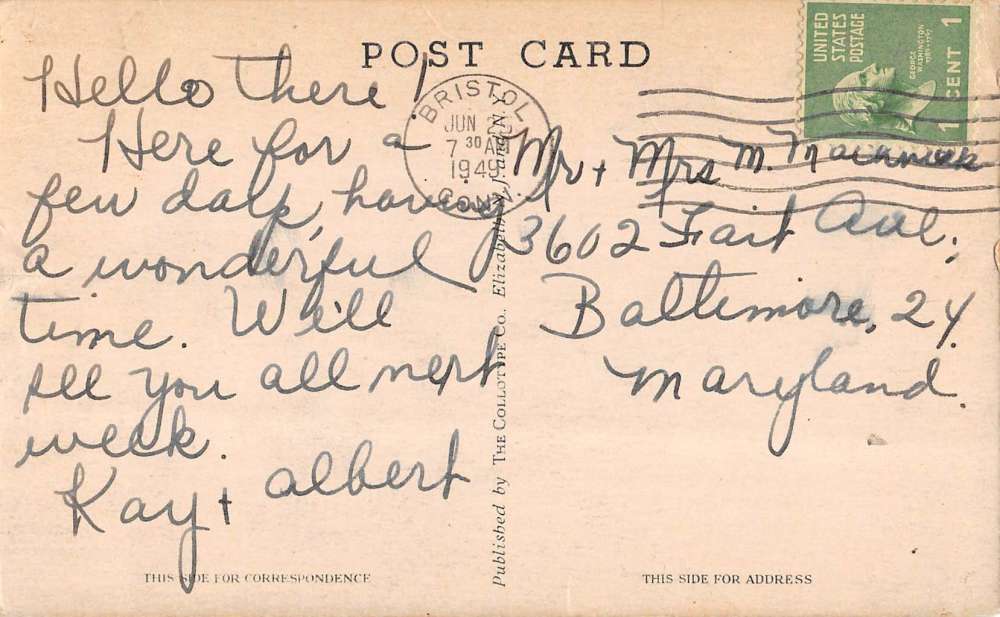 POST CARD
UNITED
STATES
POSTAGE
GEORGE
WASHINGTON
1789-1797
1 CENT 1
BRISTOL
JUN
7 30 AM
1949
CONN.
Hello There!
Here for a
few days, having
a wonderful
time. We'll
see you all next
week.
Kay + Albert
Mr + Mrs M.
3602 Fait Ave.
Baltimore, 24
Maryland.
Published by THE COLLOTYPE CO. Elizabeth, N.J. and N.Y.
THIS SIDE FOR CORRESPONDENCE
THIS SIDE FOR ADDRESS